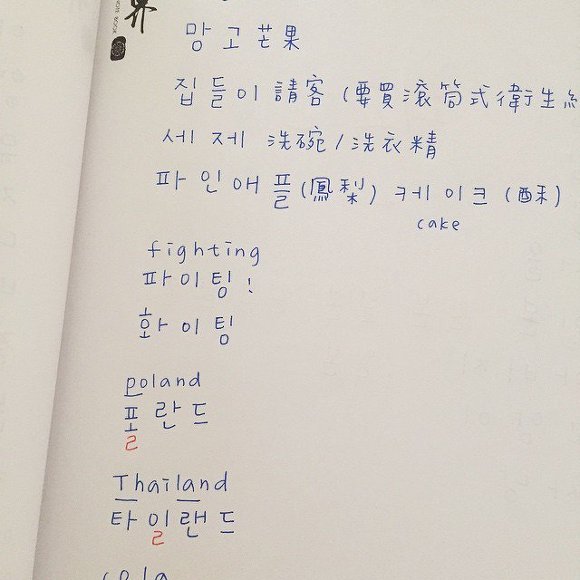 界
망고芒果
집들이請客(要買滾筒式衛生紙
세제 洗碗/洗衣精
파인애플(鳳梨) 케이크(酥)
cake
fighting
파이팅!
화이팅
poland
폴란드
ㄹ
Thailand
타일랜드
ㄹ
cola